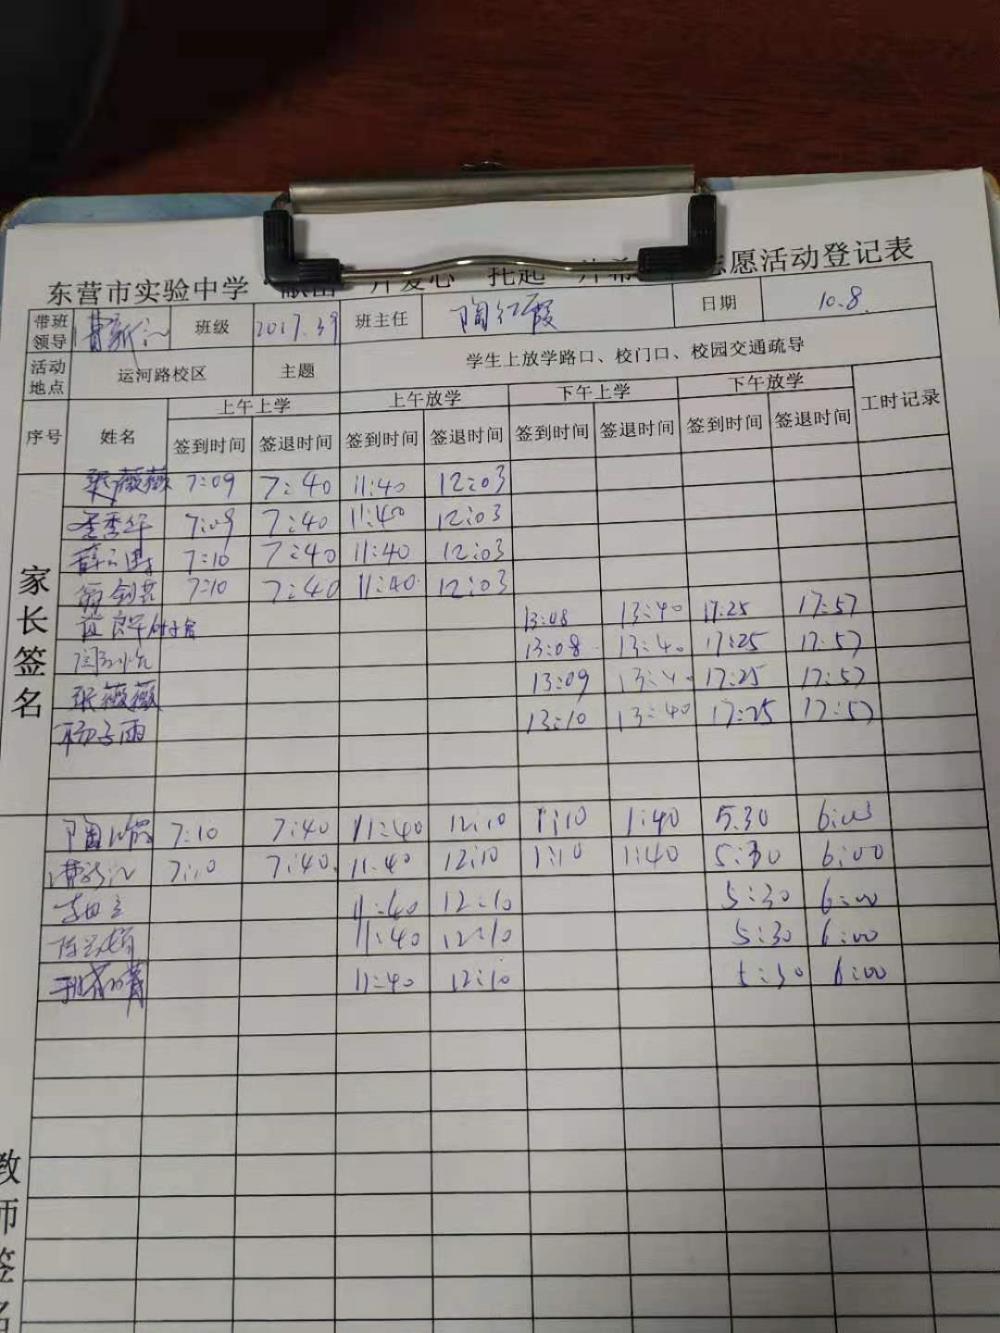 东营市实验中学 片爱心 托起 片希 志愿活动登记表
带班领导 班级 2017.39 班主任 陶红霞 日期 10.8.
活动地点 运河路校区 主题 学生上放学路口、校门口、校园交通疏导
序号 姓名 上午上学 上午放学 下午上学 下午放学 工时记录
签到时间 签退时间 签到时间 签退时间 签到时间 签退时间 签到时间 签退时间
家长签名
张薇薇 7:09 7:40 11:40 12:03
7:09 7:40 11:40 12:03
7:10 7:40 11:40 12:03
7:10 7:40 11:40 12:03
13:08 13:40 17:25 17:57
13:08 13:40 17:25 17:57
张薇薇 13:09 13:40 17:25 17:57
杨子雨 13:10 13:40 17:25 17:57
教师签名
陶红霞 7:10 7:40 11:40 12:10 1:10 1:40 5:30 6:03
7:10 7:40 11:40 12:10 1:10 1:40 5:30 6:00
11:40 12:10 5:30 6:00
11:40 12:10 5:30 6:00
11:40 12:10 5:30 6:00